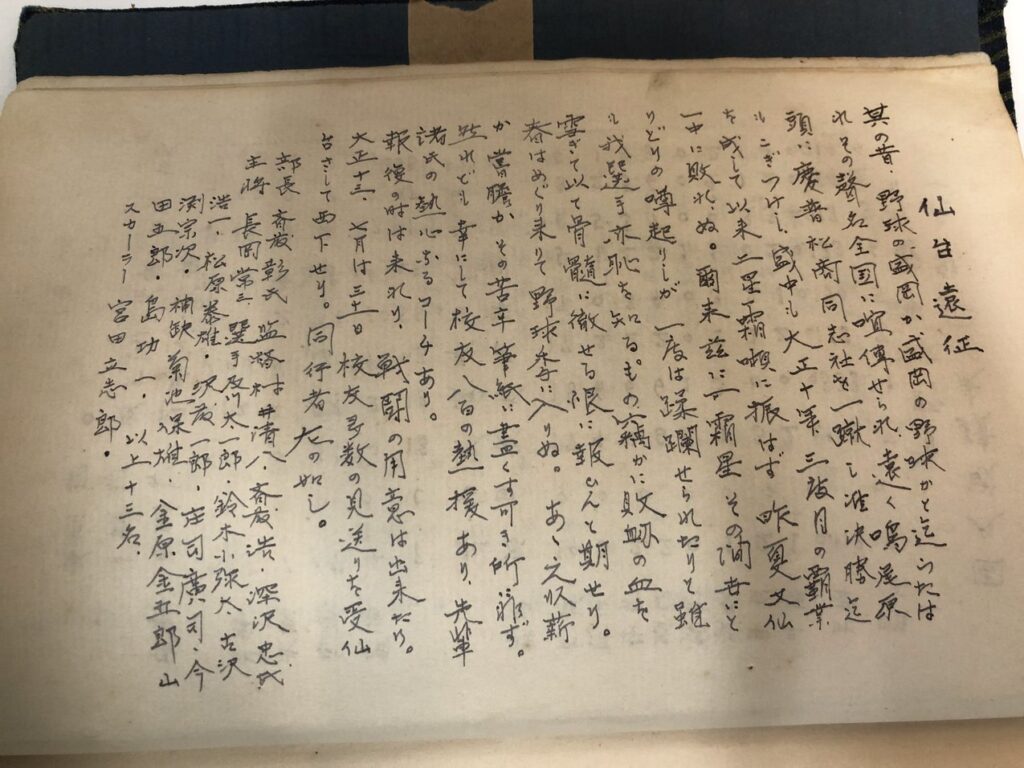 仙台遠征
其の昔、野球の盛岡か盛岡の野球かと迄うたは
れその聲名全国に喧傳せられ、遠く鳴尾原
頭に慶普松商同志社を一蹴し準決勝迄
もこぎつけし盛中も大正十年、三度目の覇業
を成して以来二星霜頓に振はず 昨夏又仙
一中に敗れぬ。爾来茲に一霜星 その間せにと
りどりの噂起りしが 一度は蹂躙せられたりと雖
も我選手亦恥を知る。もの窃かに敗衂の血を
雪ぎて以て骨髄に徹せる限に報ひんと期せり。
春はめぐり来りて野球季に入りぬ。あゝ
嘗膽かその苦辛筆紙に盡くす可き所謂ず。
然れども幸にして校友八百の熱援あり、先輩
諸氏の熱心なるコーチあり。
報復の時は来れり、戦闘の用意は出来たり。
大正十三、七月は三十一日 校友多数の見送りを受仙
台さして西下せり。同行者左の如し。
部長 斎藤彰氏 監督は 井清八、斎藤浩、深沢忠氏
主将 長岡常三 選手及川太一郎、鈴木小弥太 古沢
浩一、松原泰雄、沢度一郎、庄司廣司、今
渕宗次、補欠 菊池保雄、金原金五郎 山
田五郎、島功一、以上十三名、
スカーラー 宮田立志郎。